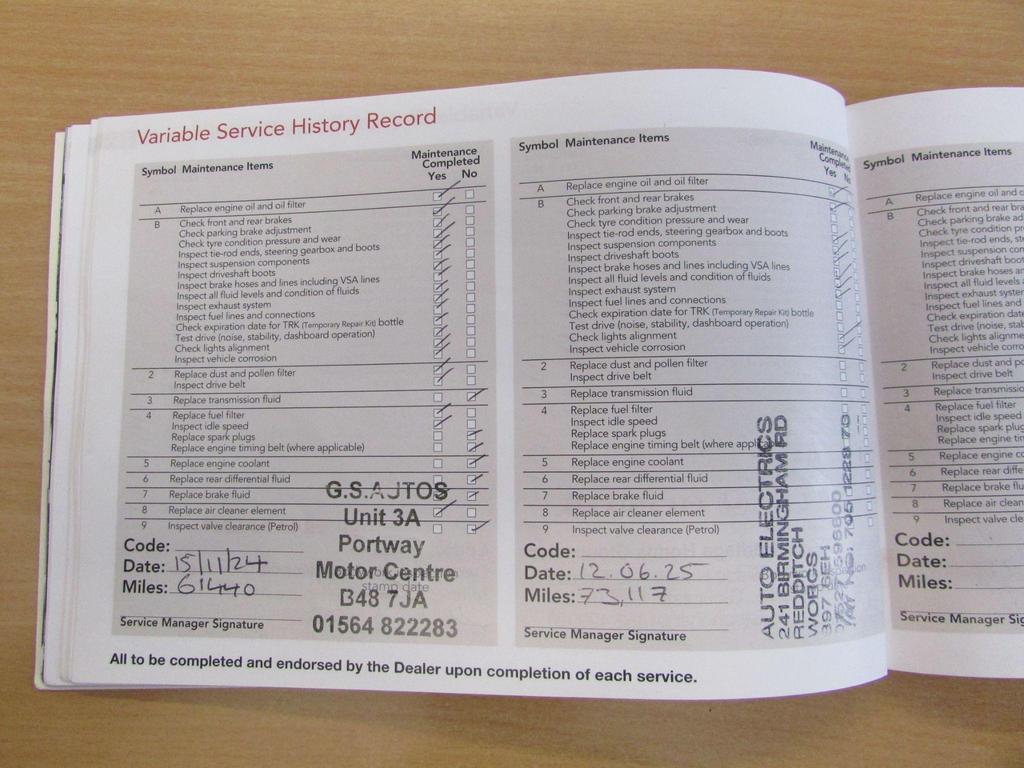 Variable Service History Record
Symbol Maintenance Items
Maintenance
Completed
Yes No
A Replace engine oil and oil filter
B Check front and rear brakes
Check parking brake adjustment
Check tyre condition pressure and wear
Inspect tie-rod ends, steering gearbox and boots
Inspect suspension components
Inspect driveshaft boots
Inspect brake hoses and lines including VSA lines
Inspect all fluid levels and condition of fluids
Inspect exhaust system
Inspect fuel lines and connections
Check expiration date for TRK (Temporary Repair Kit) bottle
Test drive (noise, stability, dashboard operation)
Check lights alignment
Inspect vehicle corrosion
2 Replace dust and pollen filter
Inspect drive belt
3 Replace transmission fluid
4 Replace fuel filter
Inspect idle speed
Replace spark plugs
Replace engine timing belt (where applicable)
5 Replace engine coolant
6 Replace rear differential fluid
7 Replace brake fluid
8 Replace air cleaner element
9 Inspect valve clearance (Petrol)
Code:
Date: 15/11/24
Miles: 61440
Service Manager Signature
G.S.AUTOS
Unit 3A
Portway
Motor Centre
stamp date
B48 7JA
01564 822283
Symbol Maintenance Items
Maintenance
Completed
Yes No
A Replace engine oil and oil filter
B Check front and rear brakes
Check parking brake adjustment
Check tyre condition pressure and wear
Inspect tie-rod ends, steering gearbox and boots
Inspect suspension components
Inspect driveshaft boots
Inspect brake hoses and lines including VSA lines
Inspect all fluid levels and condition of fluids
Inspect exhaust system
Inspect fuel lines and connections
Check expiration date for TRK (Temporary Repair Kit) bottle
Test drive (noise, stability, dashboard operation)
Check lights alignment
Inspect vehicle corrosion
2 Replace dust and pollen filter
Inspect drive belt
3 Replace transmission fluid
4 Replace fuel filter
Inspect idle speed
Replace spark plugs
Replace engine timing belt (where applicable)
5 Replace engine coolant
6 Replace rear differential fluid
7 Replace brake fluid
8 Replace air cleaner element
9 Inspect valve clearance (Petrol)
Code:
Date: 12.06.25
Miles: 73,117
Service Manager Signature
AUTO ELECTRICS
241 BIRMINGHAM RD
REDDITCH
WORCS
B97 6EH
All to be completed and endorsed by the Dealer upon completion of each service.
Symbol Maintenance Items
A Replace engine oil and o
B Check front and rear bra
Check parking brake ad
Check tyre condition pr
Inspect tie-rod ends, st
Inspect suspension con
Inspect driveshaft boot
Inspect brake hoses an
Inspect all fluid levels a
Inspect exhaust system
Inspect fuel lines and
Check expiration date
Test drive (noise, stab
Check lights alignme
Inspect vehicle corro
2 Replace dust and po
Inspect drive belt
3 Replace transmission
4 Replace fuel filter
Inspect idle speed
Replace spark plug
Replace engine tim
5 Replace engine co
6 Replace rear differe
7 Replace brake flu
8 Replace air clean
9 Inspect valve cle
Code:
Date:
Miles:
Service Manager Sig